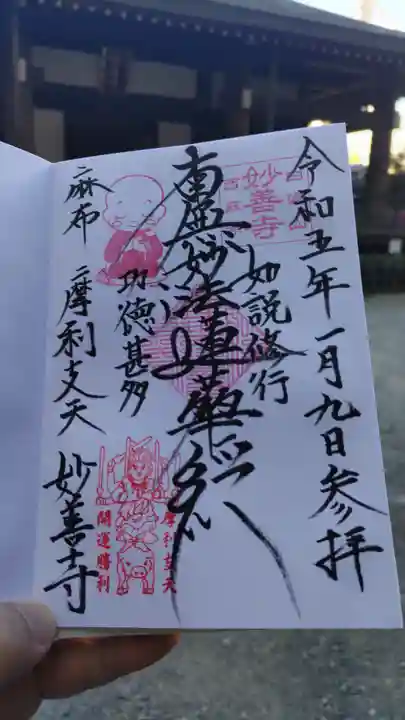 令和五年一月九日参拝
如説修行
南無妙法蓮華経
功徳甚多
麻布 摩利支天 妙善寺
妙善寺
摩利支天
開運勝利